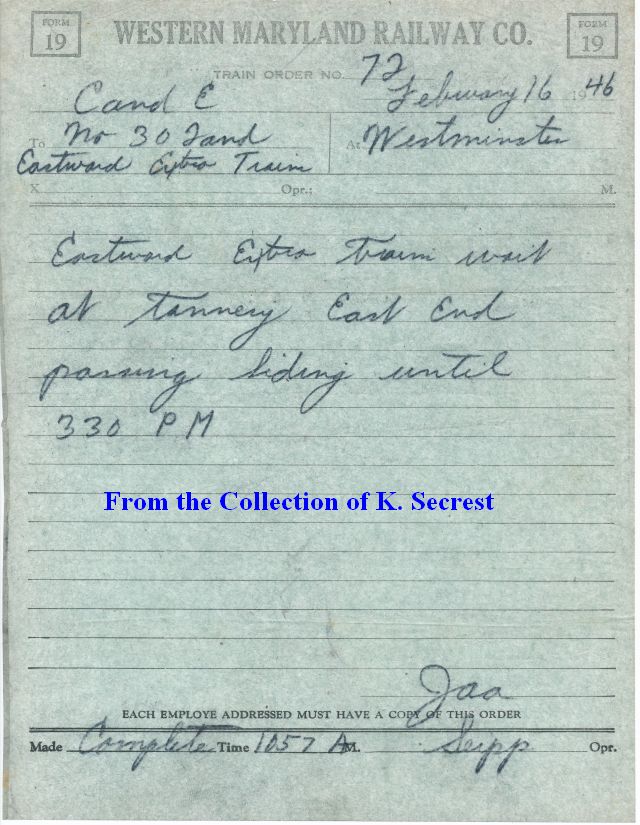 FORM 19 WESTERN MARYLAND RAILWAY CO. FORM 19
TRAIN ORDER NO. 72
February 16 1946
C and E
To No 30 and At Westminster
Eastward Extra Train
X Opr.; M.
Eastward Extra train wait
at Tannery East End
passing siding until
330 PM
From the Collection of K. Secrest
Jaa
EACH EMPLOYE ADDRESSED MUST HAVE A COPY OF THIS ORDER
Made Complete Time 1057 AM. Seipp Opr.